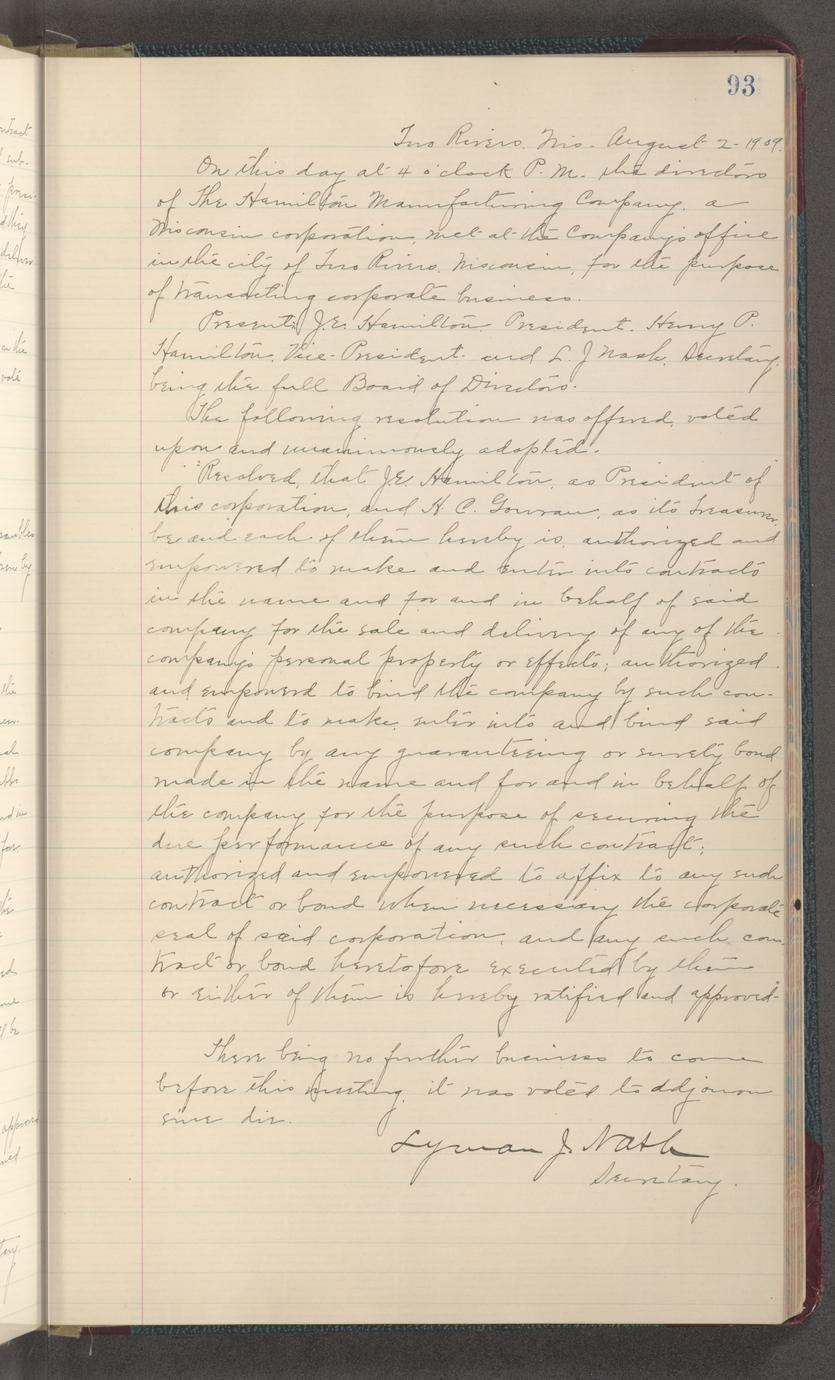 93
Two Rivers. Wis. August 2-1909.
On this day at 4 o'clock P.M. the directors
of The Hamilton Manufacturing Company, a
Wisconsin corporation, met at the Company's office
in the city of Two Rivers, Wisconsin, for the purpose
of transacting corporate business.
Present, J.E. Hamilton, President. Henry P.
Hamilton, Vice-President and L. J Nash, Secretary,
being the full Board of Directors.
The following resolution was offered, voted
upon and unanimously adopted.
"Resolved, that J.E. Hamilton, as President of
this corporation, and H. C. Gowran, as its Treasurer,
be and each of them hereby is, authorized and
empowered to make and enter into contracts
in the name and for and in behalf of said
company for the sale and delivery of any of the
company's personal property or effects; authorized
and empowerd to bind the company by such con-
tracts and to make, enter into and bind said
company by any guaranteeing or surety bond
made in the name and for and in behalf of
the company for the purpose of securing the
due performance of any such contract;
authorized and empowered to affix to any such
contract or bond when necessary the corporate
seal of said corporation, and any such con-
tract or bond heretofore executed by them
or either of them is hereby ratified and approved."
There being no further business to come
before this meeting, it was voted to adjourn
sine die.
Lyman J. Nash
Secretary.